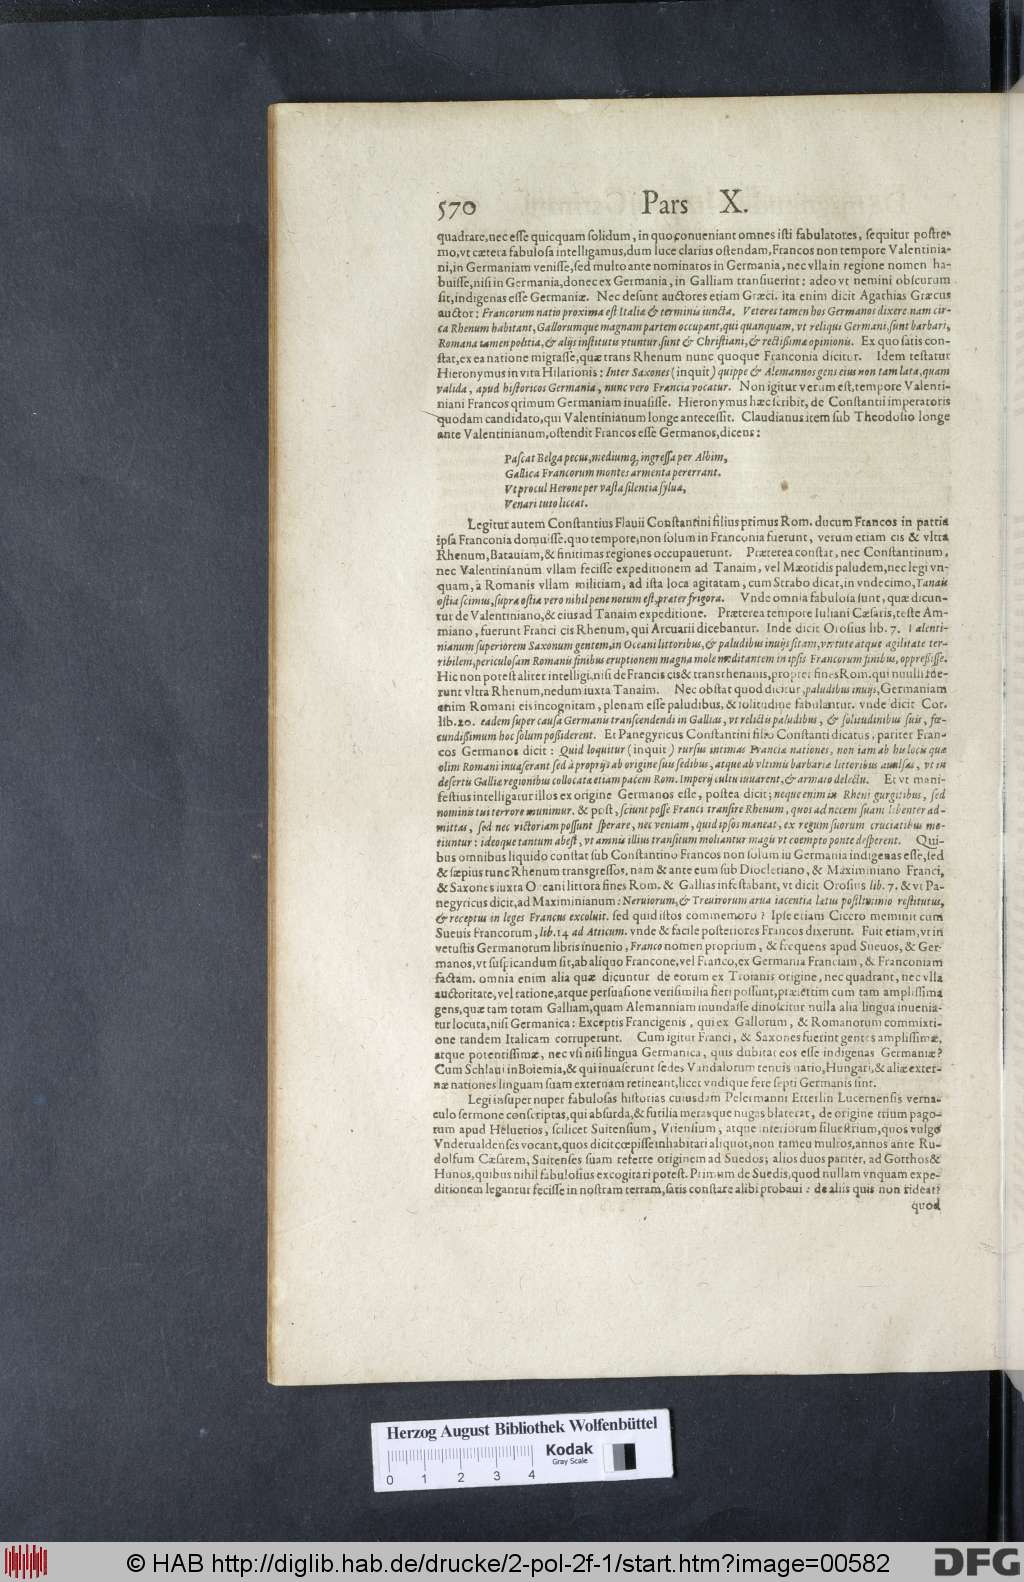 570 Pars X.
quadrare, nec esse quicquam solidum, in quo conueniant omnes isti fabulatores, sequitur postre-
mo, vt cætera fabulosa intelligamus, dum luce clarius ostendam, Francos non tempore Valentinia-
ni, in Germaniam venisse, sed multo ante nominatos in Germania, nec vlla in regione nomen ha-
buisse, nisi in Germania, donec ex Germania, in Galliam transiuerint: adeo vt nemini obscurum
sit, indigenas esse Germaniæ. Nec desunt auctores etiam Græci. ita enim dicit Agathias Græcus
auctor: Francorum natio proxima est Italiæ & terminis iuncta. Veteres tamen hos Germanos dixere nam cir-
ca Rhenum habitant, Gallorumque magnam partem occupant, qui quanquam, vt reliqui Germani, sunt barbari,
Romana tamen politia, & alijs institutis vtuntur. sunt & Christiani, & rectissimæ opinionis. Ex quo satis con-
stat, ex ea natione migrasse, quæ trans Rhenum nunc quoque Franconia dicitur. Idem testatur
Hieronymus in vita Hilarionis: Inter Saxones (inquit) quippe & Alemannos gens eius non tam lata, quam
valida, apud historicos Germania, nunc vero Francia vocatur. Non igitur verum est, tempore Valenti-
niani Francos qrimum Germaniam inuasisse. Hieronymus hæc scribit, de Constantii imperatoris
quodam candidato, qui Valentinianum longe antecessit. Claudianus item sub Theodosio longe
ante Valentinianum, ostendit Francos esse Germanos, dicens:
Pascat Belga pecus, mediumq; ingressa per Albim,
Gallica Francorum montes armenta pererrant.
Vt procul Herone per vasta silentia sylua,
Venari tuto liceat.
Legitur autem Constantius Flauii Constantini filius primus Rom. ducum Francos in patria
ipsa Franconia domuisse. quo tempore, non solum in Franconia fuerunt, verum etiam cis & vltra
Rhenum, Batauiam, & finitimas regiones occupauerunt. Præterea constat, nec Constantinum,
nec Valentinianum vllam fecisse expeditionem ad Tanaim, vel Mæotidis paludem, nec legi vn-
quam, à Romanis vllam militiam, ad ista loca agitatam, cum Strabo dicat, in vndecimo, Tanais
ostia scimus, supra ostia vero nihil pene notum est, præter frigora. Vnde omnia fabulosa sunt, quæ dicun-
tur de Valentiniano, & eius ad Tanaim expeditione. Præterea tempore Iuliani Cæsaris, teste Am-
miano, fuerunt Franci cis Rhenum, qui Arcuarii dicebantur. Inde dicit Orosius lib. 7. Valenti-
nianum superiorem Saxonum gentem, in Oceani littoribus, & paludibus inuijs sitam, virtute atque agilitate ter-
ribilem, periculosam Romanis finibus eruptionem magna mole meditantem in ipsis Francorum finibus, oppressisse.
Hic non potest aliter intelligi, nisi de Francis cis & transrhenanis, propter fines Rom. qui nulli fue-
runt vltra Rhenum, nedum iuxta Tanaim. Nec obstat quod dicitur, paludibus inuijs, Germaniam
enim Romani eis incognitam, plenam esse paludibus, & solitudine fabulantur. vnde dicit Cor.
lib. 20. eadem super causa Germanis transcendendi in Gallias, vt relictis paludibus, & solitudinibus suis, fœ-
cundissimum hoc solum possiderent. Et Panegyricus Constantini filio Constanti dicatus, pariter Fran-
cos Germanos dicit: Quid loquitur (inquit) rursus intimas Franciæ nationes, non iam ab his locis quæ
olim Romani inuaserant sed à proprijs ab origine suis sedibus, atque ab vltimis barbariæ littoribus auulsas, vt in
desertis Galliæ regionibus collocatæ etiam pacem Rom. Imperij cultu iuuarent, & armato delectu. Et vt mani-
festius intelligatur illos ex origine Germanos esse, postea dicit; neque enim in Rheni gurgitibus, sed
nominis tui terrore munimur. & post, sciunt posse Franci transire Rhenum, quos ad necem suam libenter ad-
mittas, sed nec victoriam possunt sperare, nec veniam, quid ipsos maneat, ex regum suorum cruciatibus me-
tiuntur: ideoque tantum abest, vt amnis illius transitum moliantur magis vt coempto ponte desperent. Qui-
bus omnibus liquido constat sub Constantino Francos non solum iu Germania indigenas esse, sed
& sæpius tunc Rhenum transgressos, nam & ante eum sub Diocletiano, & Maximiano Franci,
& Saxones iuxta Oceani littora fines Rom. & Gallias infestabant, vt dicit Orosius lib. 7. & vt Pa-
negyricus dicit, ad Maximinianum: Neruiorum, & Treuirorum arua iacentia lætus postliminio restitutus,
& receptus in leges Francus excoluit. sed quid istos commemoro? Ipse etiam Cicero meminit cum
Sueuis Francorum, lib. 14 ad Atticum. vnde & facile posteriores Francos dixerunt. Fuit etiam, vt in
vetustis Germanorum libris inuenio, Franco nomen proprium, & frequens apud Sueuos, & Ger-
manos, vt suspicandum sit, ab aliquo Francone, vel Franco, ex Germania Franciam, & Franconiam
factam. omnia enim alia quæ dicuntur de eorum ex Troianis origine, nec quadrant, nec vlla
auctoritate, vel ratione, atque persuasione verisimilia fieri possunt, præsertim cum tam amplissima
gens, quæ tam totam Galliam, quam Alemanniam inundasse dinoscitur nulla alia lingua inuenia-
tur locuta, nisi Germanica: Exceptis Francigenis, qui ex Gallorum, & Romanorum commixti-
one tandem Italicam corruperunt. Cum igitur Franci, & Saxones fuerint gentes amplissimæ,
atque potentissimæ, nec vsi nisi lingua Germanica, quis dubitat eos esse indigenas Germaniæ?
Cum Schlaui in Boiemia, & qui inuaserunt sedes Vandalorum tenuis natio, Hungari, & aliæ exter-
næ nationes linguam suam externam retineant, licet vndique fere septi Germanis sint.
Legi insuper nuper fabulosas historias cuiusdam Petermanni Etterlin Lucernensis verna-
culo sermone conscriptas, qui absurda, & futilia merasque nugas blaterat, de origine trium pago-
rum apud Heluetios, scilicet Suitensium, Vriensium, atque interiorum siluestrium, quos vulgo
Vnderualdenses vocant, quos dicit cœpisse inhabitari aliquot, non tameu multos, annos ante Ru-
dolfum Cæsarem, Suitenses suam referre originem ad Suedos; alios duos pariter, ad Gotthos &
Hunos, quibus nihil fabulosius excogitari potest. Primum de Suedis, quod nullam vnquam expe-
ditionem legantur fecisse in nostram terram, satis constare alibi probaui: de aliis quis non rideat?
quod
Herzog August Bibliothek Wolfenbüttel
Kodak
Gray Scale
0 1 2 3 4
© HAB http://diglib.hab.de/drucke/2-pol-2f-1/start.htm?image=00582
DFG